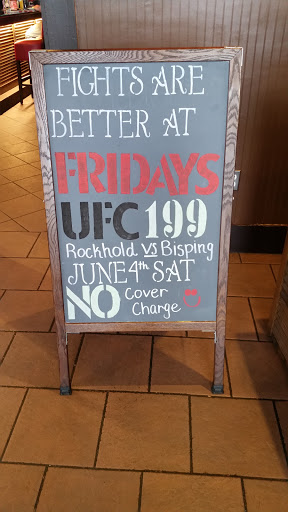 FIGHTS ARE
BETTER AT
FRIDAYS
UFC 199
Rockhold VS Bisping
JUNE 4th SAT
NO Cover
Charge